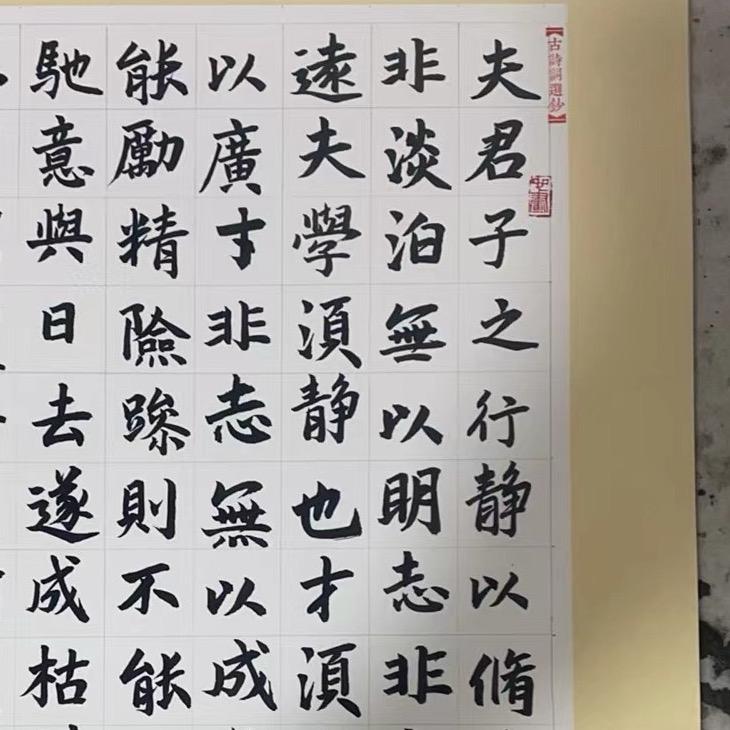 【古詩詞選鈔】
夫君子之行静以脩
非淡泊無以明志非
遠夫學湏静也才湏
以廣才非志無以成
能勵精險躁則不能
馳意與日去遂成枯